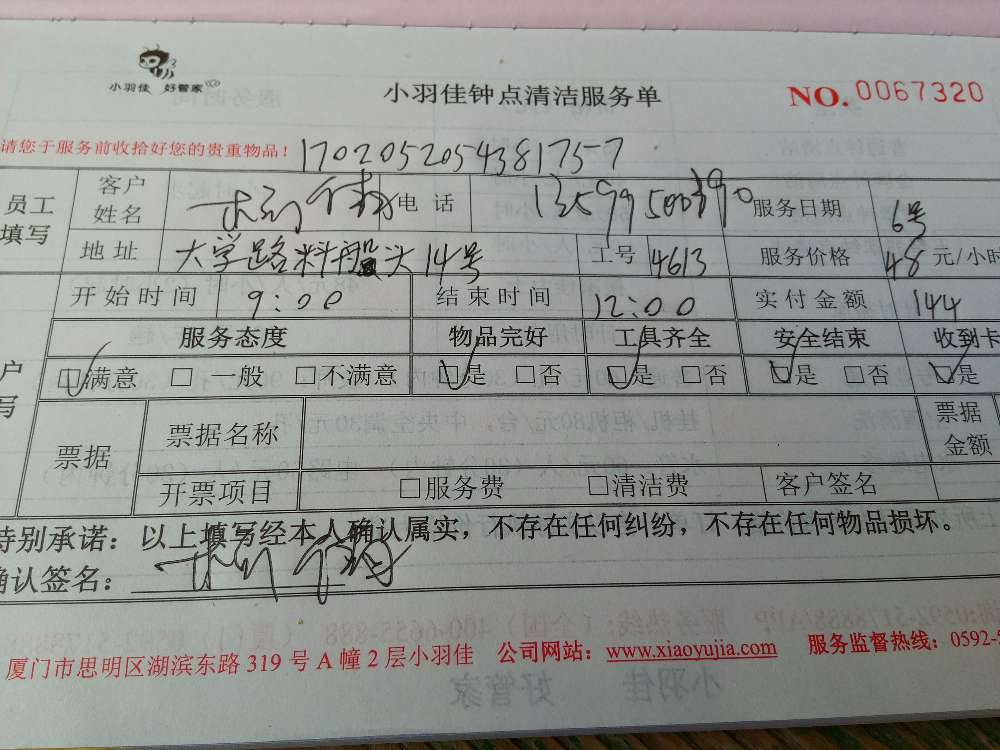 小羽佳 好管家
小羽佳钟点清洁服务单 NO. 0067320
请您于服务前收拾好您的贵重物品! 1702052054381757
员工填写 客户姓名 电话 服务日期 6号
地址 大学路料船头14号 工号 4613 服务价格 48 元/小时
开始时间 9:00 结束时间 12:00 实付金额 144
服务态度 物品完好 工具齐全 安全结束 收到卡
户写 满意 □一般 □不满意 是 □否 是 □否 是 □否 是
票据 票据名称 票据金额
开票项目 □服务费 □清洁费 客户签名
特别承诺:以上填写经本人确认属实,不存在任何纠纷,不存在任何物品损坏。
确认签名:
厦门市思明区湖滨东路 319 号 A 幢 2 层小羽佳 公司网站:www.xiaoyujia.com 服务监督热线:0592-